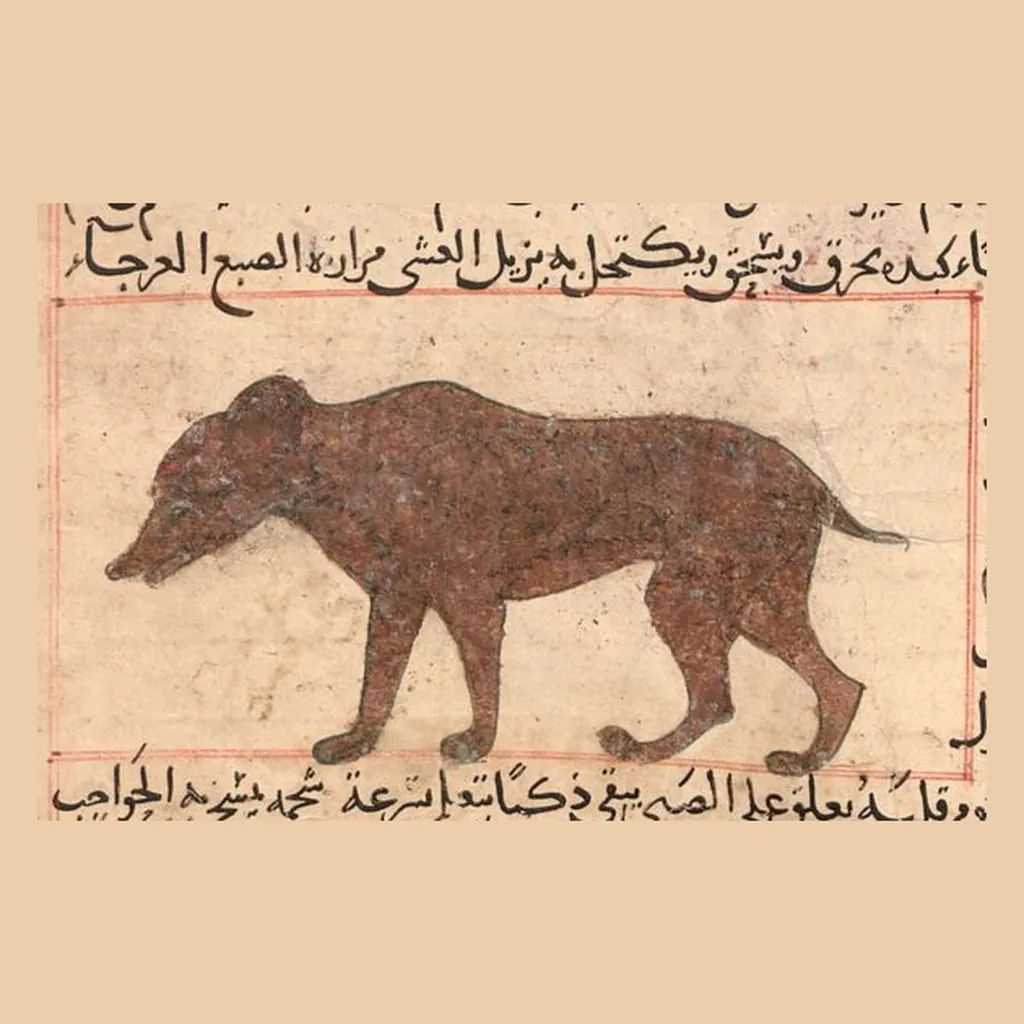 كبده يحرق ويسحق ويكتحل به يزيل العشى مرارة الضبع العرجاء
وقلبه يعلق على الصبى يبقى ذكيًا يتعلم بسرعة شحمه به الحواجب